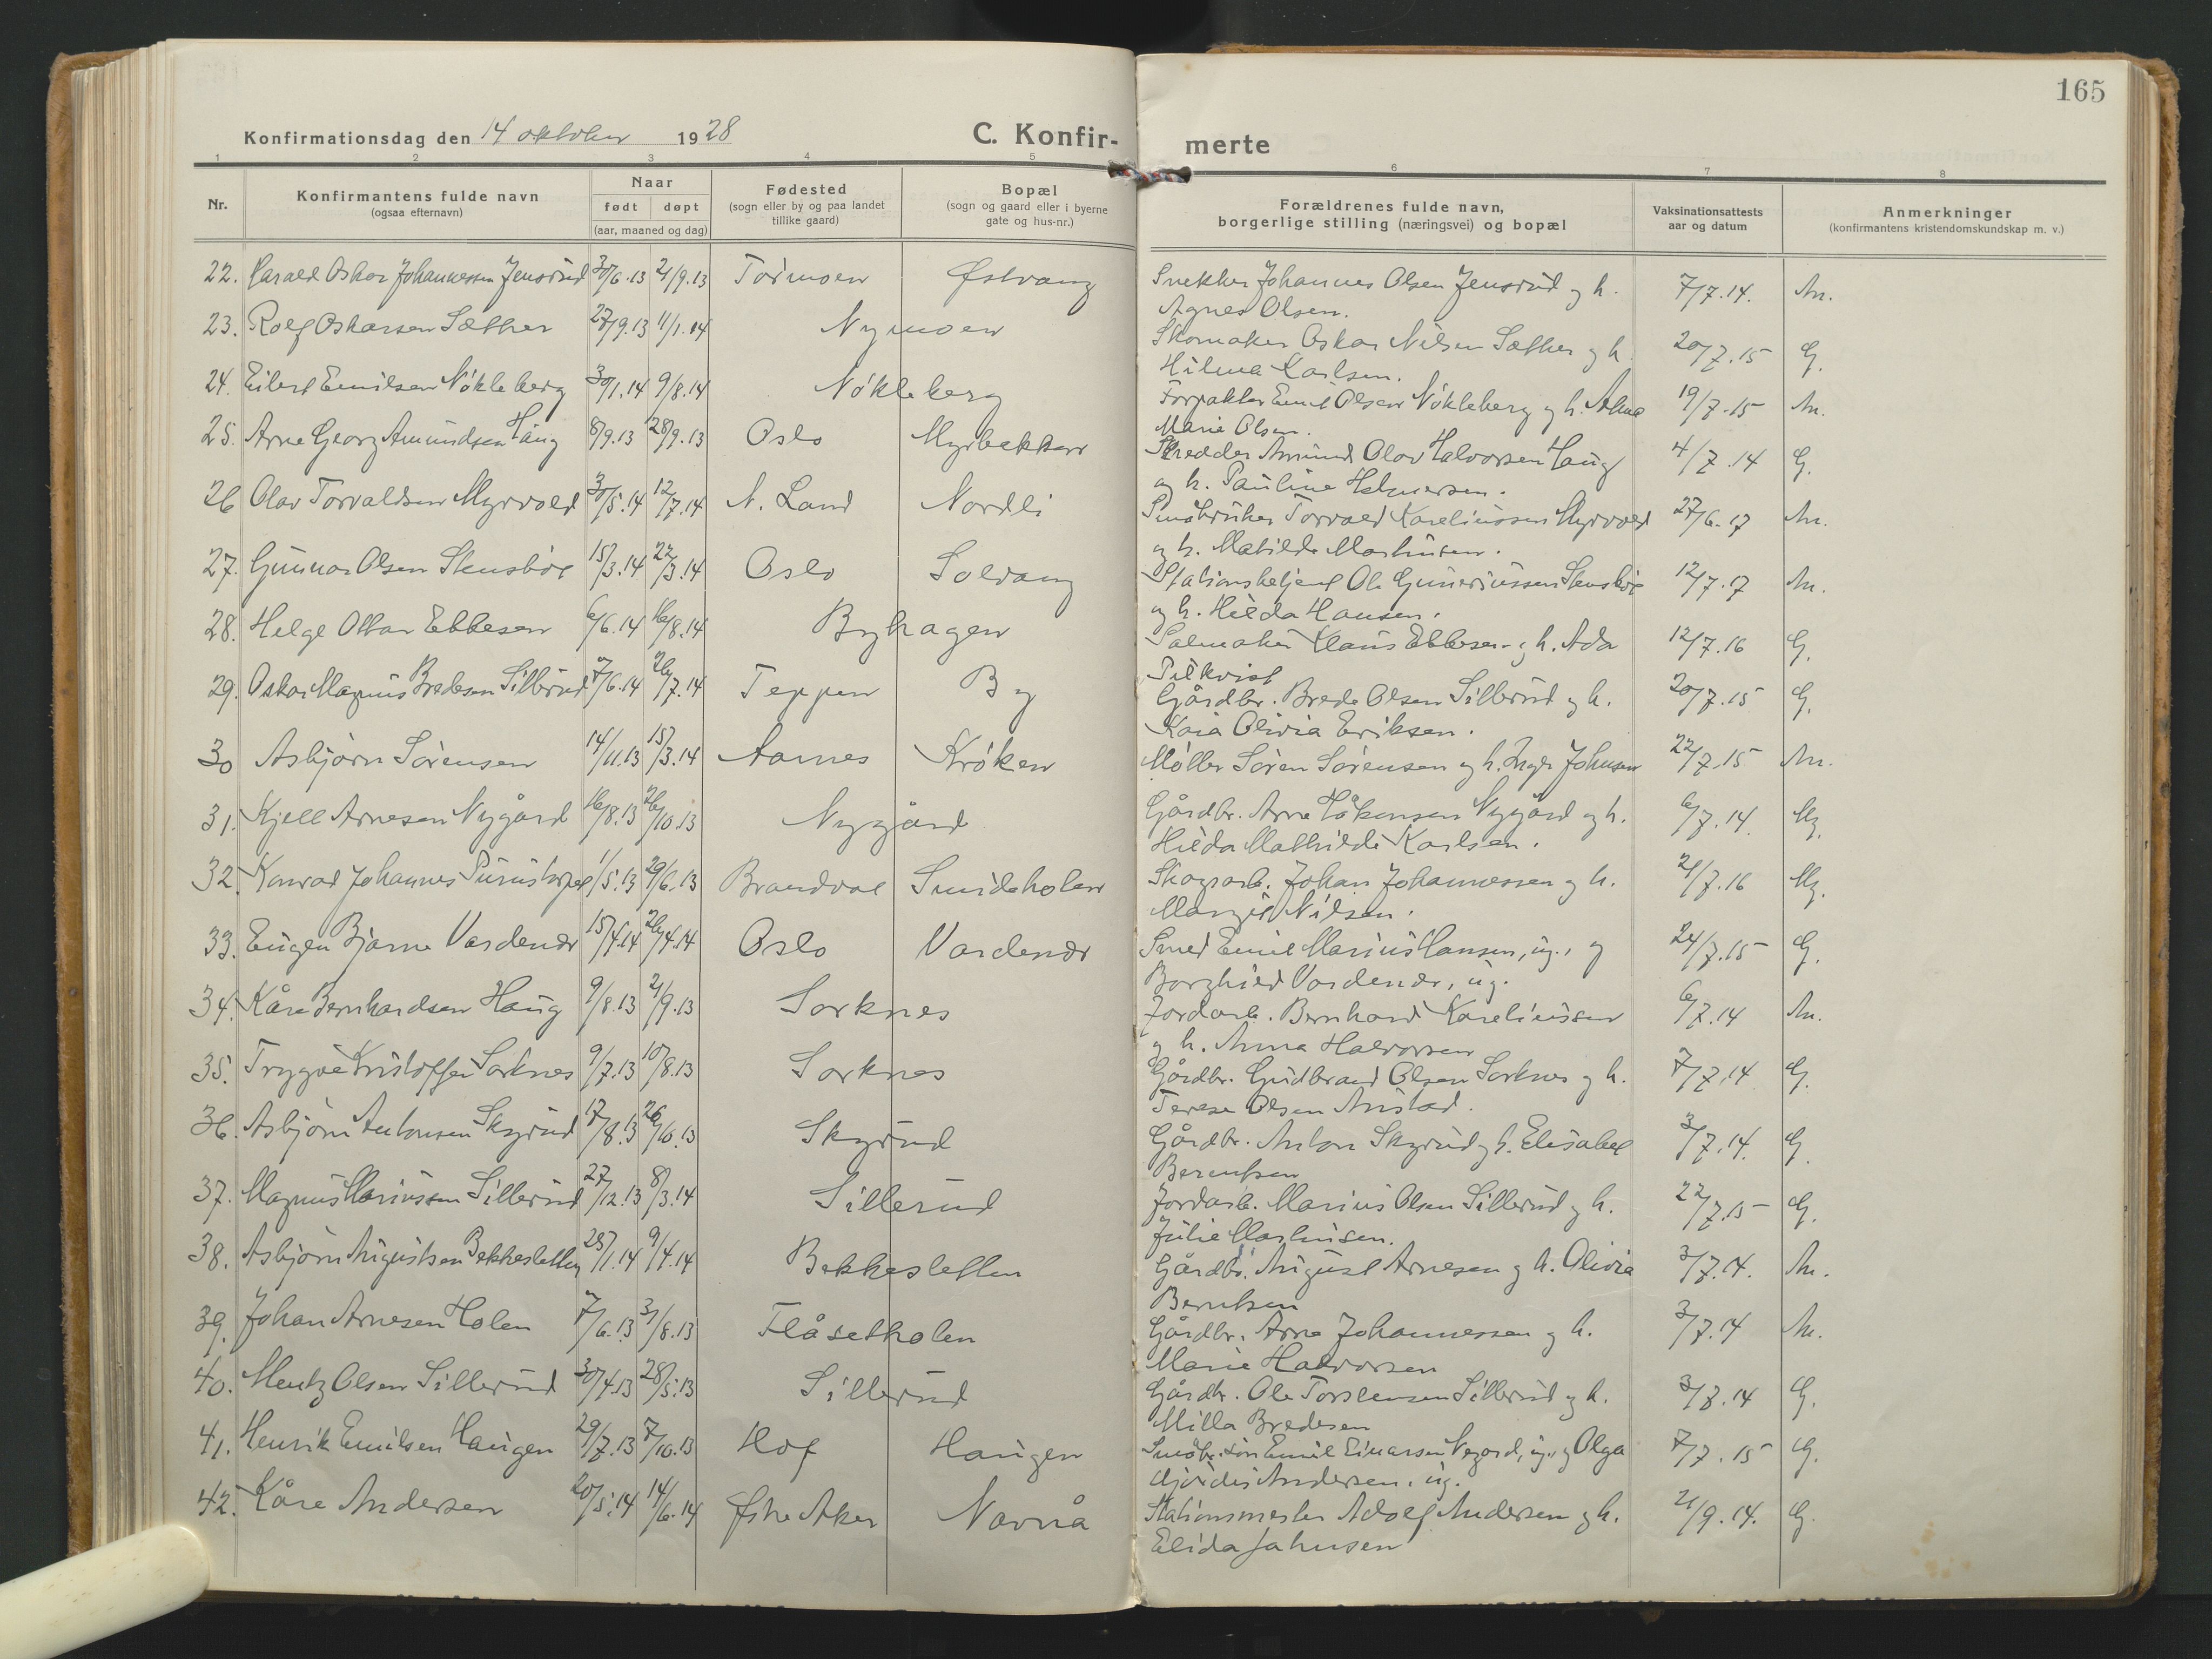 165
Konfirmationsdag den 14 oktober 1928
C. Konfir-merte
1 2 3 4 5 6 7 8
Nr.
Konfirmantens fulde navn
(ogsaa efternavn)
Naar
født døpt
(aar, maaned og dag)
Fødested
(sogn eller by og paa landet
tillike gaard)
Bopæl
(sogn og gaard eller i byerne
gate og hus-nr.)
Forældrenes fulde navn,
borgerlige stilling (næringsvei) og bopæl
Vaksinationsattests
aar og datum
Anmerkninger
(konfirmantens kristendomskundskap m. v.)
22. Harald Oskar Johannessen Jensrud 30/6.13 21/9.13 Tørmoen Østvang Snekker Johannes Olsen Jensrud og h. 7/7.14. M.
Agnes Olsen.
23. Rolf Oskarsen Sæther 27/9.13 11/1.14 Nymoen Skomaker Oskar Nilsen Sæther og h. 20/7.15 G.
Hilma Karlsen.
24. Eilert Emilsen Nøkleberg 30/1.14 9/8.14 Nøkleberg Forpakter Emil Olsen Nøkleberg og h. Alma 19/7.15 M.
Marie Olsen.
25. Arne Georg Amundsen Haug 8/9.13 28/9.13 Oslo Myrbekken Skredder Amund Olav Halvorsen Haug 4/7.14 G.
og h. Pauline Halmersen.
26 Olav Torvaldsen Myrvold 30/5.14 12/7.14 N. Land Nordli Småbruker Torvald Kareliussen Myrvold 27/6.17 M.
og h. Matilde Martinsen.
27. Gunnar Olsen Stensbøl 15/3.14 22/3.14 Oslo Solvang Stationsbetjent Ole Guneriussen Stensbøl 12/7.17 M.
og h. Hilda Hansen.
28. Helge Ottar Ebbesen 6/6.14 16/8.14 Byhagen Salmaker Klaus Ebbesen og h. Ada 12/7.16 G.
Pilkvist
29. Oskar Magnus Bredesen Sillerud 7/6.14 26/7.14 Teppen By Gårdbr. Brede Olsen Sillerud og h. 20/7.15 G.
Kaia Olivia Eriksen.
30 Asbjørn Sørensen 14/11.13 15/3.14 Aarnes Krøken Møller Søren Sørensen og h. Inga Johnsen 22/7.15 M.
31. Kjell Arnesen Nygård 16/8.13 26/10.13 Nygård Gårdbr. Arne Håkensen Nygård og h. 6/7.14 Mg.
Hilda Mathilde Karlsen.
32. Konrad Johannes Purustorpet 1/5.13 29/6.13 Brandval Smideholen Skogsarb. Johan Johannessen og h. 21/7.16 Mg.
Margit Nilsen.
33. Eugen Bjarne Vardenær 15/4.14 26/4.14 Oslo Vardenær Smed Emil Marius Hansen, ug., og 24/7.15 G.
Borghild Vardenær, ug.
34. Kåre Bernhardsen Haug 9/8.13 21/9.13 Sorknes Jordarb. Bernhard Kareliussen 6/7.14 M.
og h. Anna Halvorsen
35. Trygve Kristoffer Sorknes 9/7.13 10/8.13 Sorknes Gårdbr. Gudbrand Olsen Sorknes og h. 7/7.14 G.
Terese Olsen Anstad.
36. Asbjørn Antonsen Skyrud 17/8.13 26/10.13 Skyrud Gårdbr. Anton Skyrud og h. Elisabet 3/7.14. G.
Berentsen
37. Magnus Mariussen Sillerud 27/12.13 8/3.14 Sillerud Jordarb. Marius Olsen Sillerud og h. 22/7.15 G.
Julie Martinsen.
38. Asbjørn Augustsen Bekkesletten 25/1.14 9/4.14 Bekkesletten Gårdbr. August Arnesen og h. Olivia 3/7.14. M.
Berntsen
39. Johan Arnesen Holen 7/6.13 31/8.13 Flåsetholen Gårdbr. Arne Johannessen og h. 3/7.14 M.
Marie Halvorsen
40. Mentz Olsen Sillerud 30/4.13 28/5.13 Sillerud Gårdbr. Ole Torstensen Sillerud og h. 3/8.14 G.
Milla Bredesen
41. Henrik Emilsen Haugen 29/7.13 7/10.13 Hof Haugen Småbr.søn Emil Einarsen Negard, ug., og Olga 7/7.15 G.
Hjørdis Andersen, ug.
42. Kåre Andersen 20/5.14 14/6.14 Østre Aker Navnå Stationsmester Adolf Andersen og h. 21/9.14. G.
Elida Jahnsen